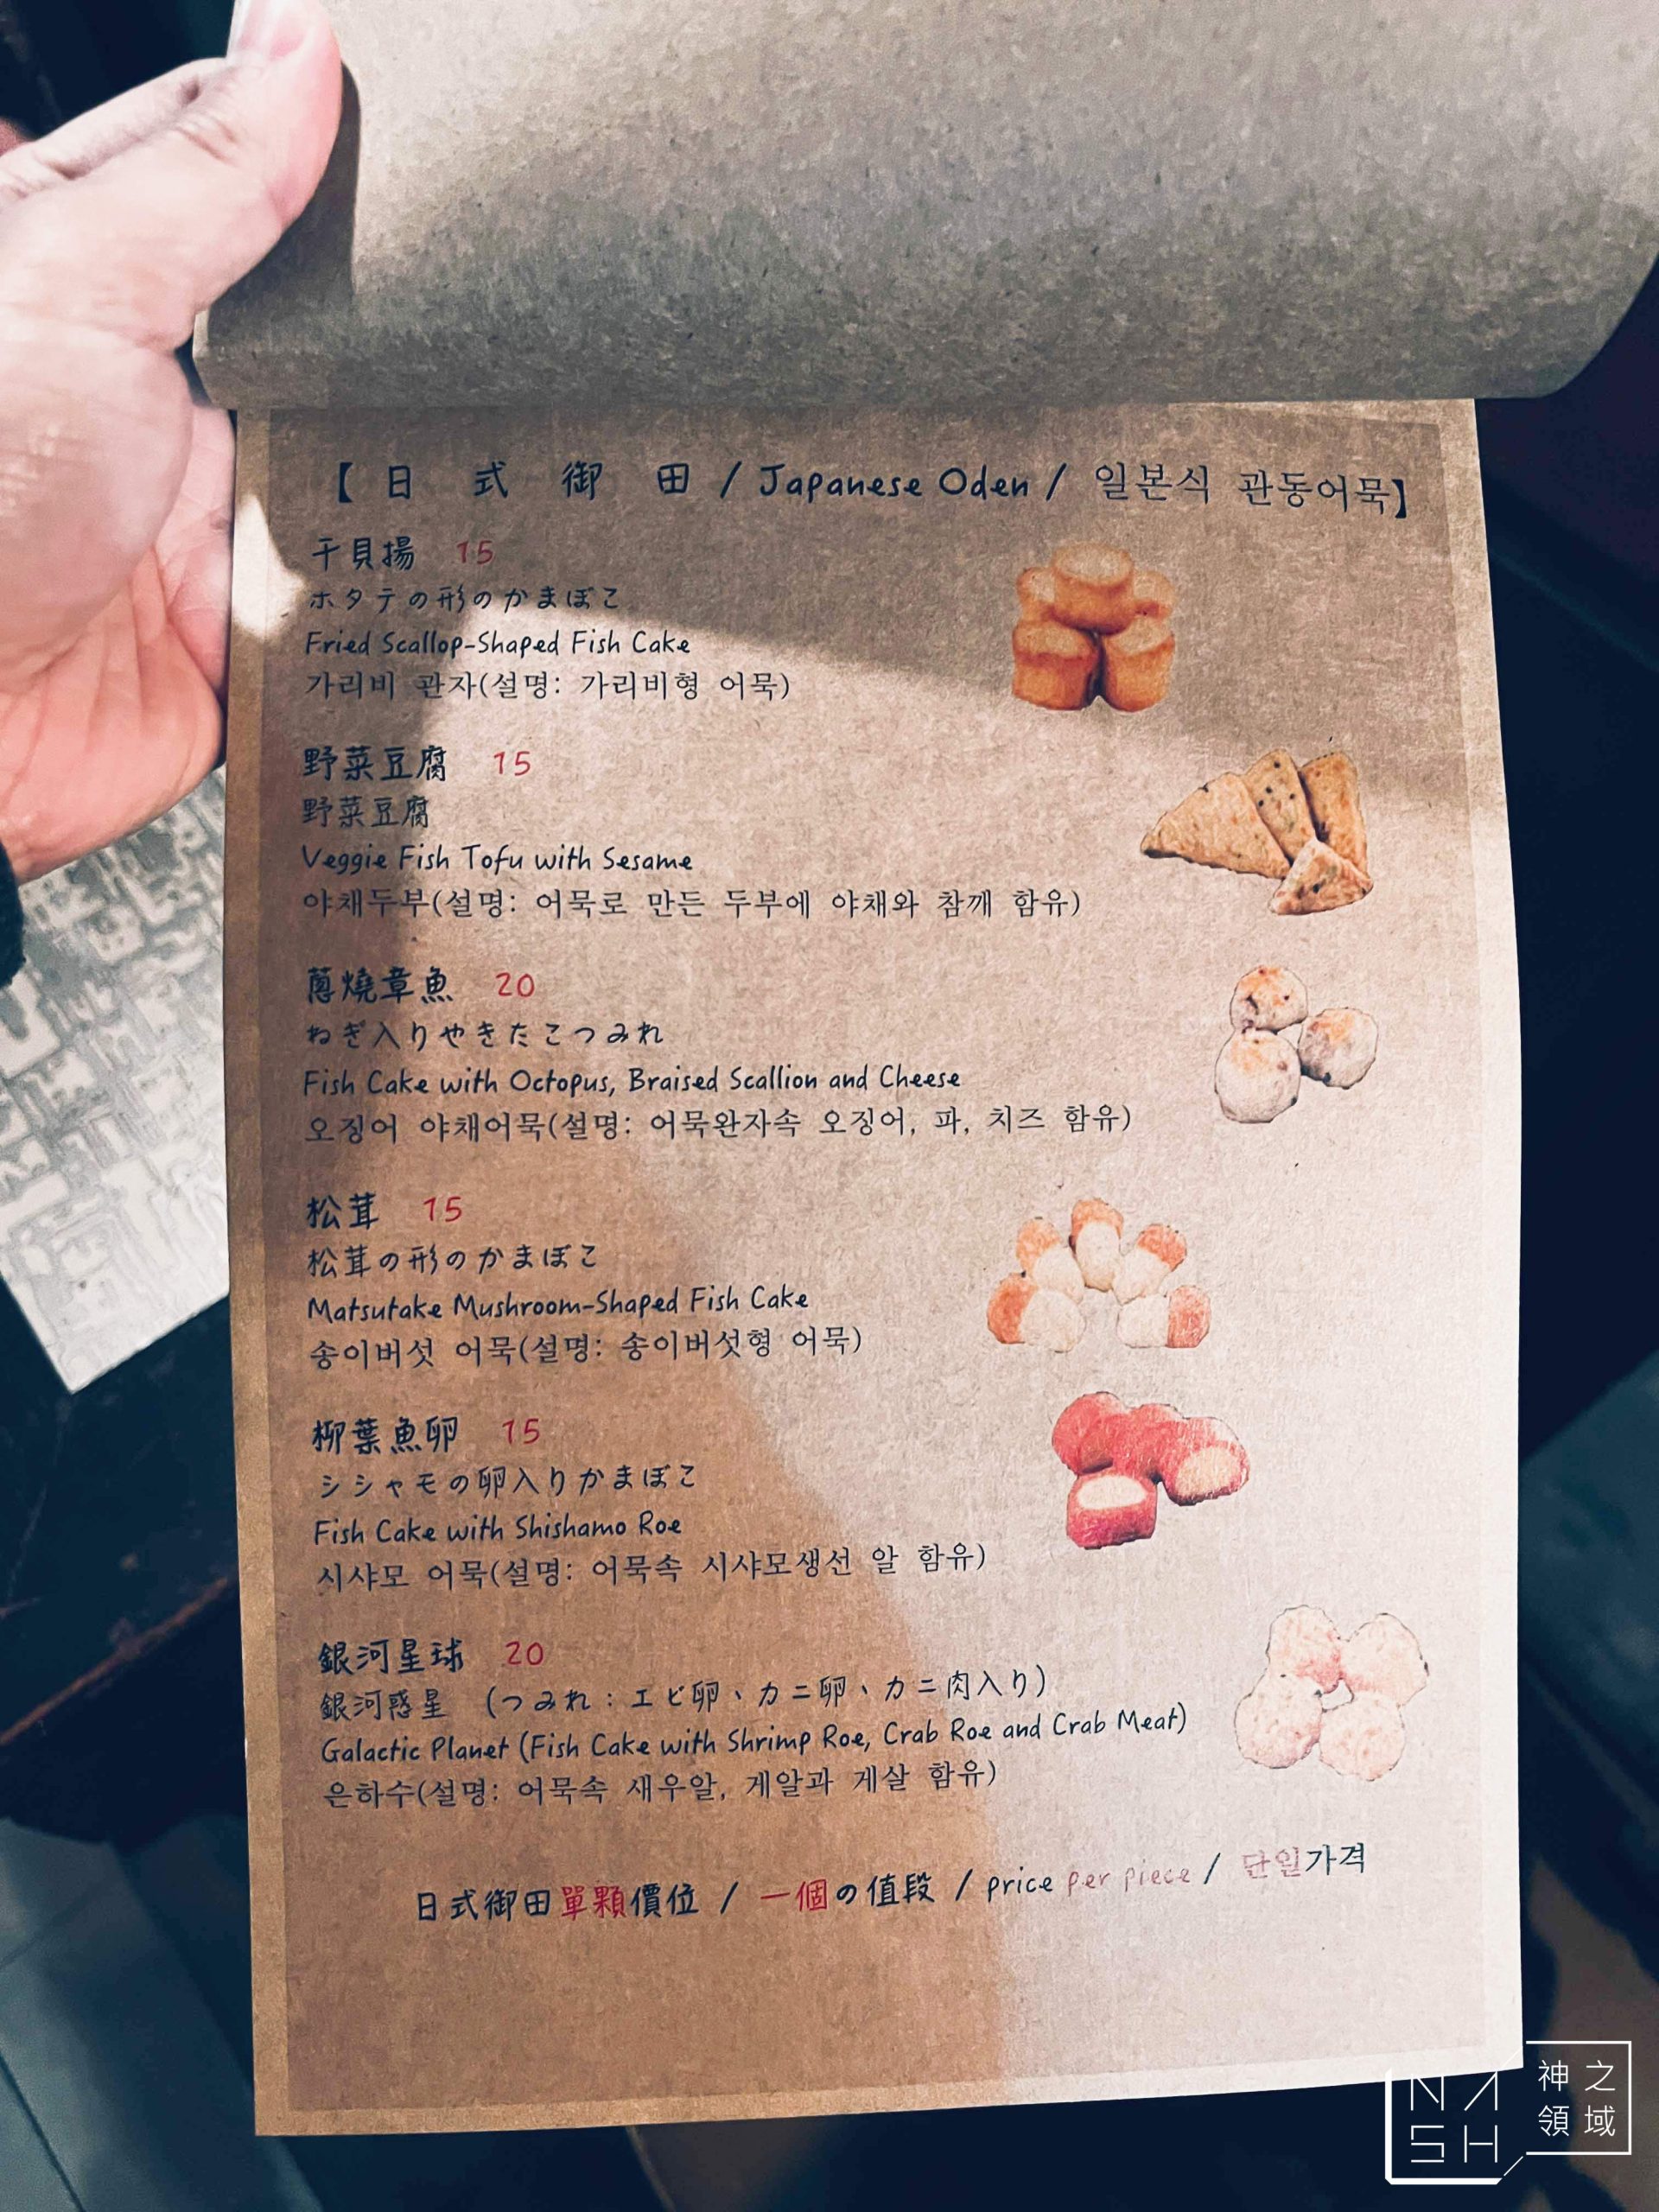 【日式御田 / Japanese Oden / 일본식 관동어묵】
干貝揚 15
ホタテの形のかまぼこ
Fried Scallop-Shaped Fish Cake
가리비 관자(설명: 가리비형 어묵)
野菜豆腐 15
野菜豆腐
Veggie Fish Tofu with Sesame
야채두부(설명: 어묵로 만든 두부에 야채와 참깨 함유)
蔥燒章魚 20
ねぎ入りやきたこつみれ
Fish Cake with Octopus, Braised Scallion and Cheese
오징어 야채어묵(설명: 어묵완자속 오징어, 파, 치즈 함유)
松茸 15
松茸の形のかまぼこ
Matsutake Mushroom-Shaped Fish Cake
송이버섯 어묵(설명: 송이버섯형 어묵)
柳葉魚卵 15
シシャモの卵入りかまぼこ
Fish Cake with Shishamo Roe
시샤모 어묵(설명: 어묵속 시샤모생선 알 함유)
銀河星球 20
銀河惑星 (つみれ:エビ卵、カニ卵、カニ肉入り)
Galactic Planet (Fish Cake with Shrimp Roe, Crab Roe and Crab Meat)
은하수(설명: 어묵속 새우알, 게알과 게살 함유)
日式御田單顆價位 / 一個の値段 / price per piece / 단일가격
NASH
神之領域